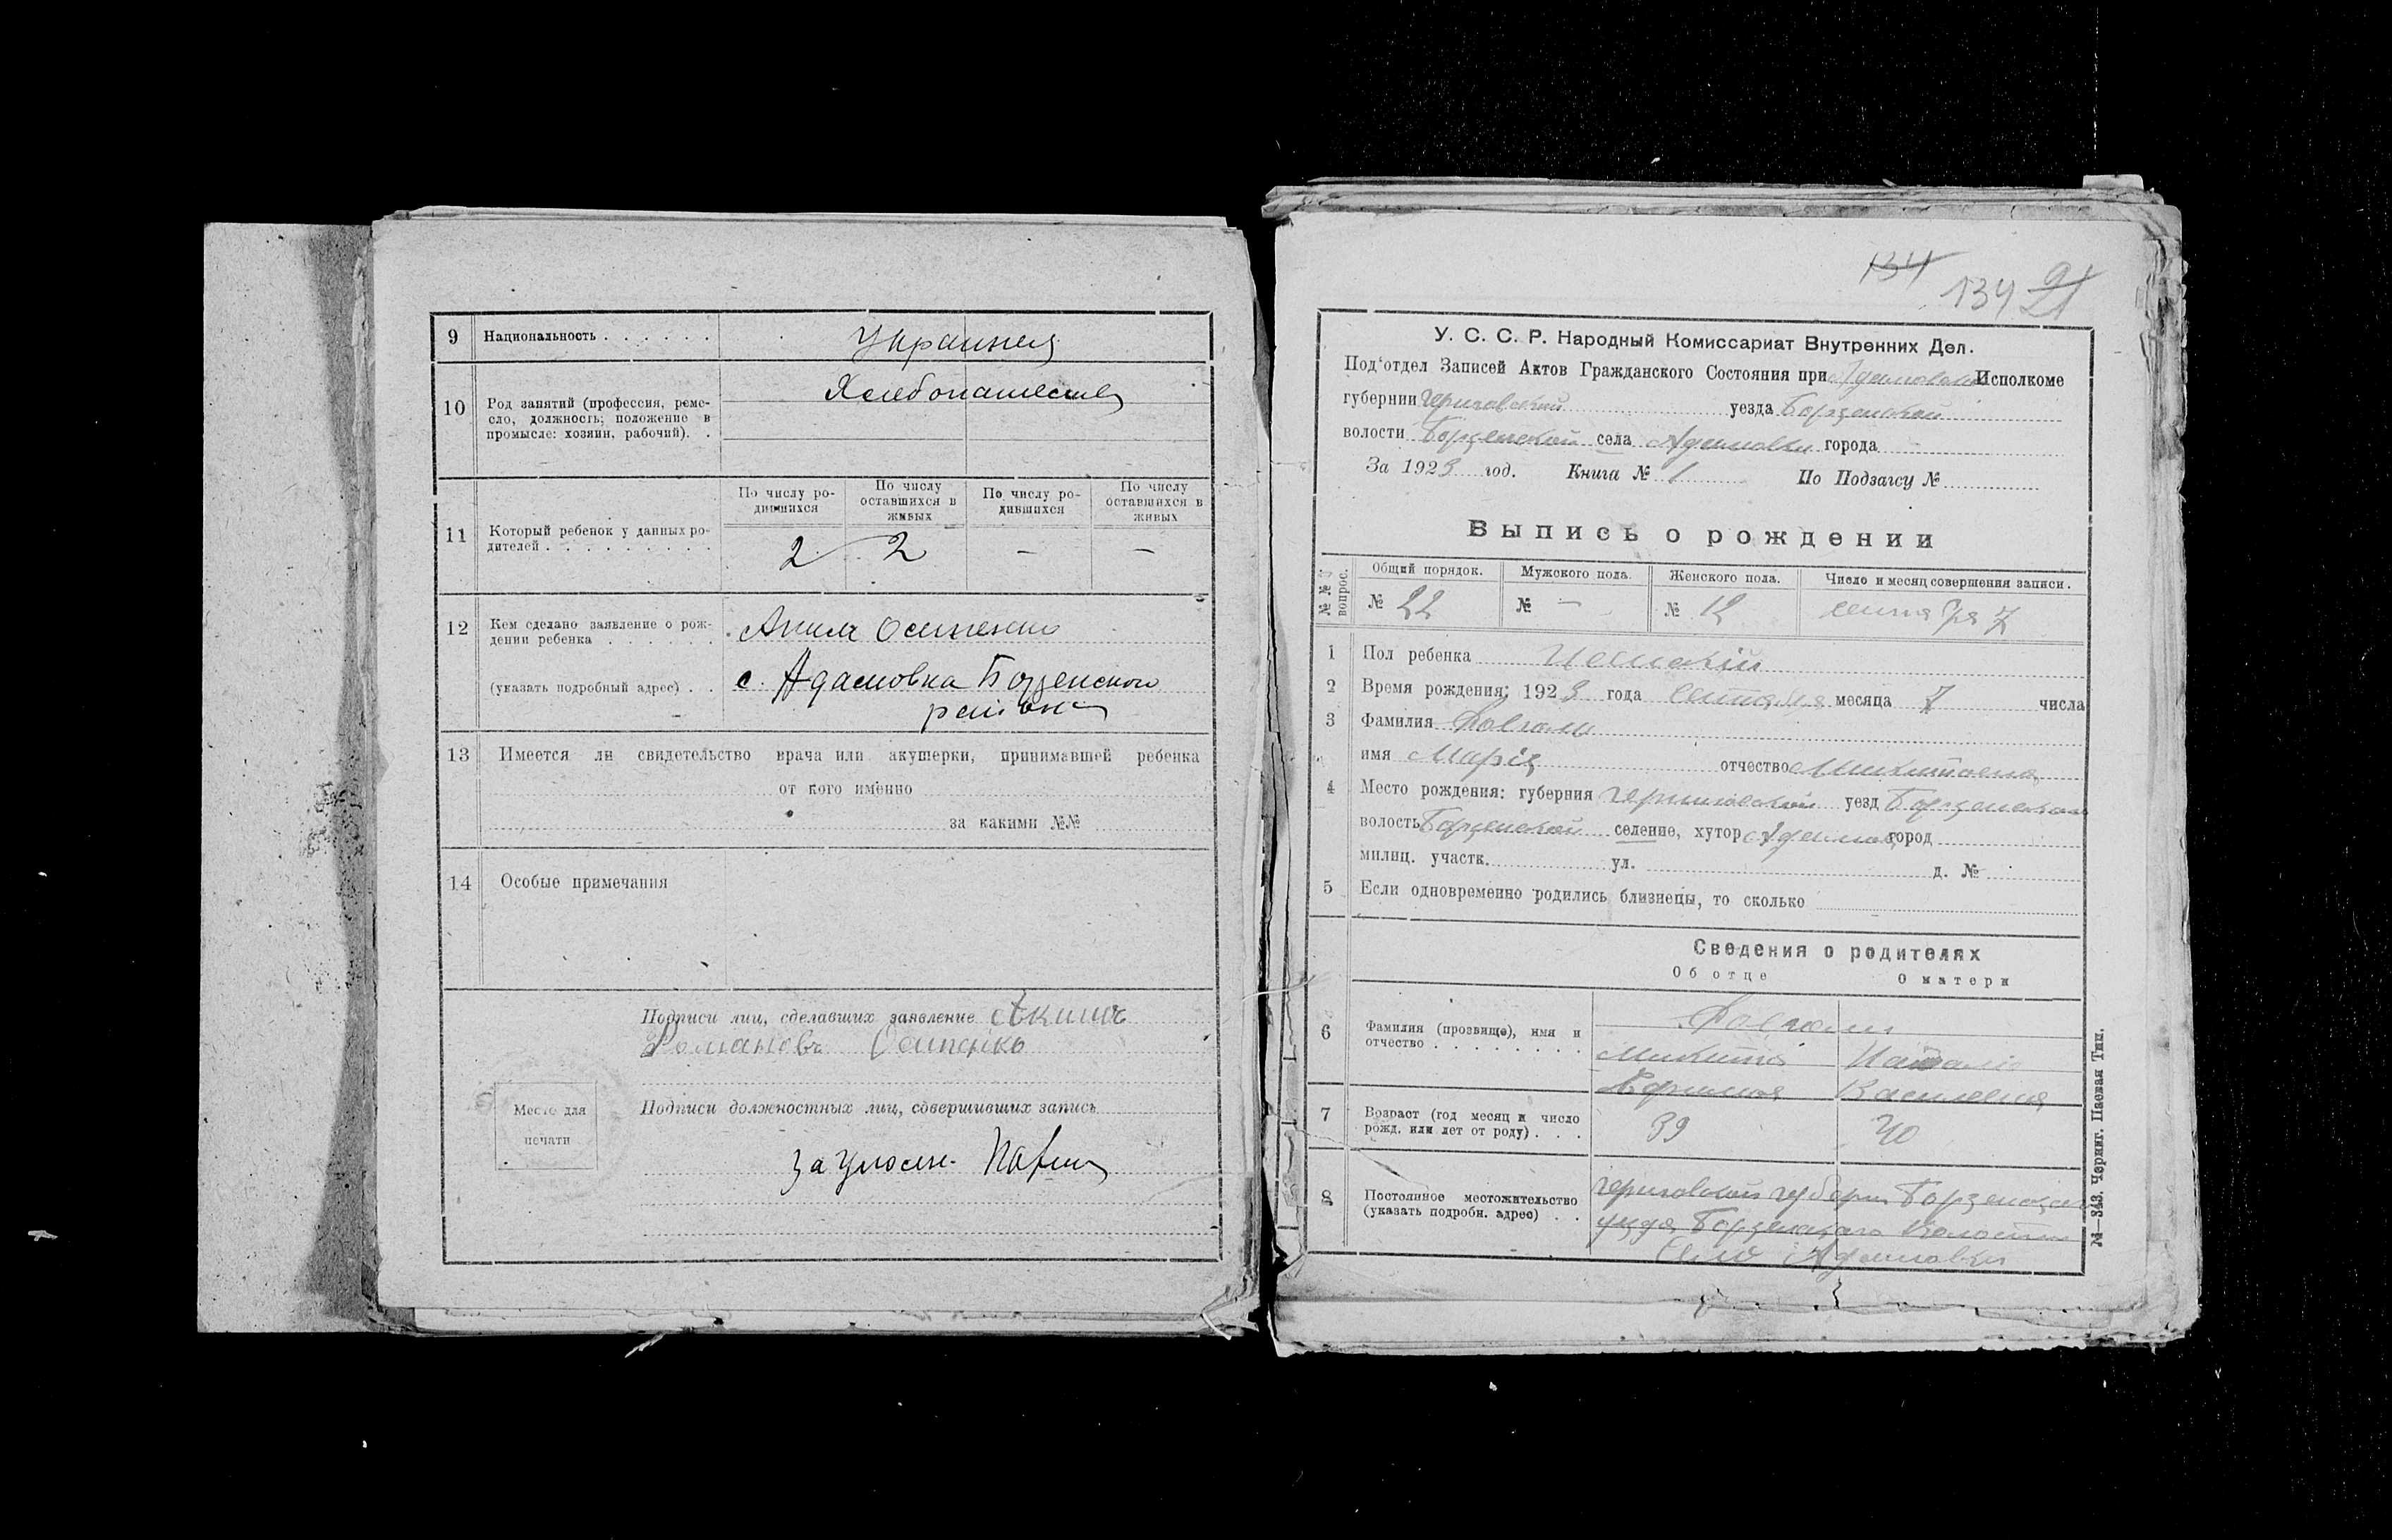 9 Национальность . . . . . . Украинец
10 Род занятий (профессия, реме-
сло, должность, положение в
промысле: хозяин, рабочий). .
Хлебопашество
11 Который ребенок у данных ро-
дителей . . . . . . . . .
По числу ро-
дившихся
По числу
оставшихся в
живых
По числу ро-
дившихся
По числу
оставшихся в
живых
2 2 — —
12 Кем сделано заявление о рож-
дении ребенка . . . . . .
Аким Осипенко
(указать подробный адрес) . . с. Адамовка Борзенского
района
13 Имеется ли свидетельство врача или акушерки, принимавшей ребенка
от кого именно
за какими №№
14 Особые примечания
Подписи лиц, сделавших заявление Акимъ
Романовъ Осипенко
Место для
печати
Подписи должностных лиц, совершивших запись
134
134 21
У. С. С. Р. Народный Комиссариат Внутренних Дел.
Под‘отдел Записей Актов Гражданского Состояния при Адамовском Исполкоме
губернии Черниговской уезда Борзенской
волости Борзенской села Адамовки города
За 1923 год. Книга № 1 По Подзагсу №
Выпись о рождении
№№ вопрос.
Общий порядок. Мужского пола. Женского пола. Число и месяц совершения записи.
№ 22 № — № 12 сентября 7
1 Пол ребенка Женский
2 Время рождения; 1923 года Сентября месяца 7 числа
3 Фамилия Довгаль
имя Марія отчество Микитовна
4 Место рождения: губерния Черниговской уезд Борзенской
волость Борзенской селение, хутор Адамовка город
милиц. участк. ул. д. №
5 Если одновременно родились близнецы, то сколько
Сведения о родителях
Об отце О матери
6 Фамилия (прозвище), имя и
отчество . . . . . . . . .
Довгаль
Микита Наталія
Василевна
7 Возраст (год месяц и число
рожд. или лет от роду) . . .
39 40
8 Постоянное местожительство
(указать подробн. адрес) . .
Черниговской губерни Борзенскаго
уезда Борзенскаго Волости
Село Адамовки
№—343. Черниг. Паевая Тип.